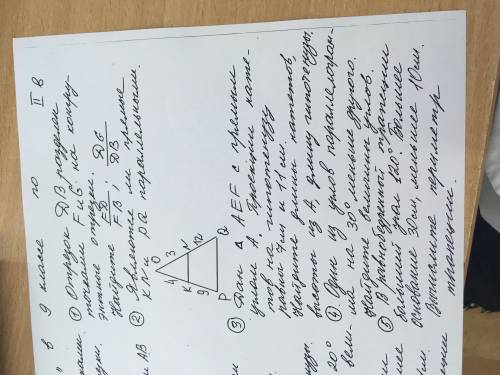 в 9 классе по II в
① Отрезок ДВ раздели
точками F и G на конгру-
энтные отрезки.
Найдите FD/FB, DG/DB
② Являются ли прямые
KN и PQ параллельными.
O
4 3
K N
9 2
P Q
③ Дан Δ AEF с прямым
углом A. Проекции кате-
тов на гипотенузу
равны 7см и 11 см.
Найдите длины катетов,
высоты из A, длину гипотенузы.
④ Один из углов параллелограм-
на 30° меньше другого.
Найдите величины углов.
⑤ В равнобедренной трапеции
больший угол 120°. Большее
основание 30см, меньшее 10см.
Вычислите периметр
трапеции.
ками.
м AB
20°
вели-